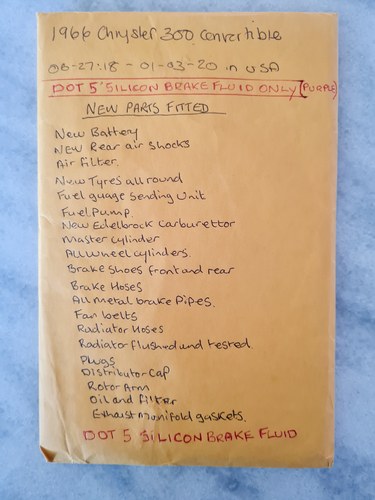 1966 Chrysler 300 convertible
06-27-18 - 01-03-20 in USA
DOT 5 SILICON BRAKE FLUID ONLY (PURPLE)
NEW PARTS FITTED
New Battery
NEW Rear air shocks
Air filter
New Tyres all round
Fuel guage Sending Unit
Fuel Pump.
New Edelbrock Carburettor
Master cylinder
All wheel cylinders.
Brake shoes front and rear
Brake Hoses
All metal brake Pipes.
Fan belts
Radiator Hoses
Radiator flushed and tested.
Plugs
Distributor Cap
Rotor Arm
Oil and filter
Exhaust manifold gaskets.
DOT 5 SILICON BRAKE FLUID